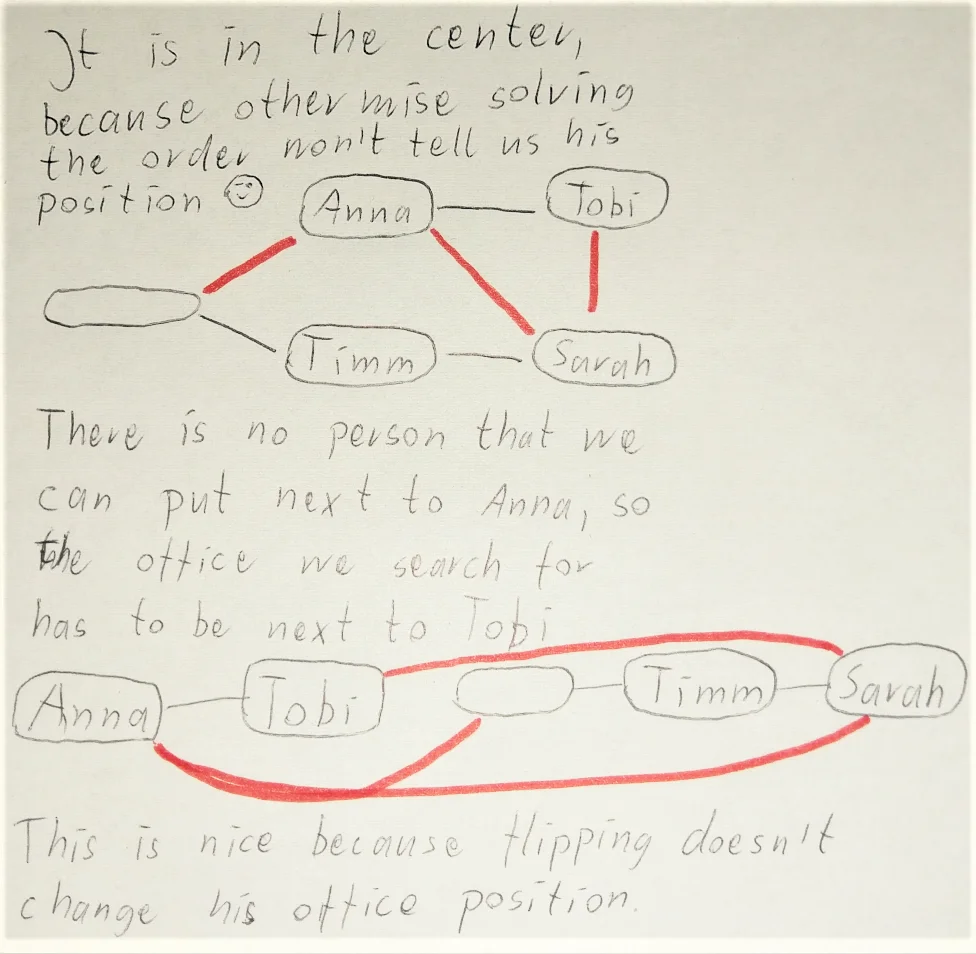 It is in the center,
because otherwise solving
the order won't tell us his
position
Anna
Tobi
Timm
Sarah
There is no person that we
can put next to Anna, so
the office we search for
has to be next to Tobi
Anna
Tobi
Timm
Sarah
This is nice because flipping doesn't
change his office position.